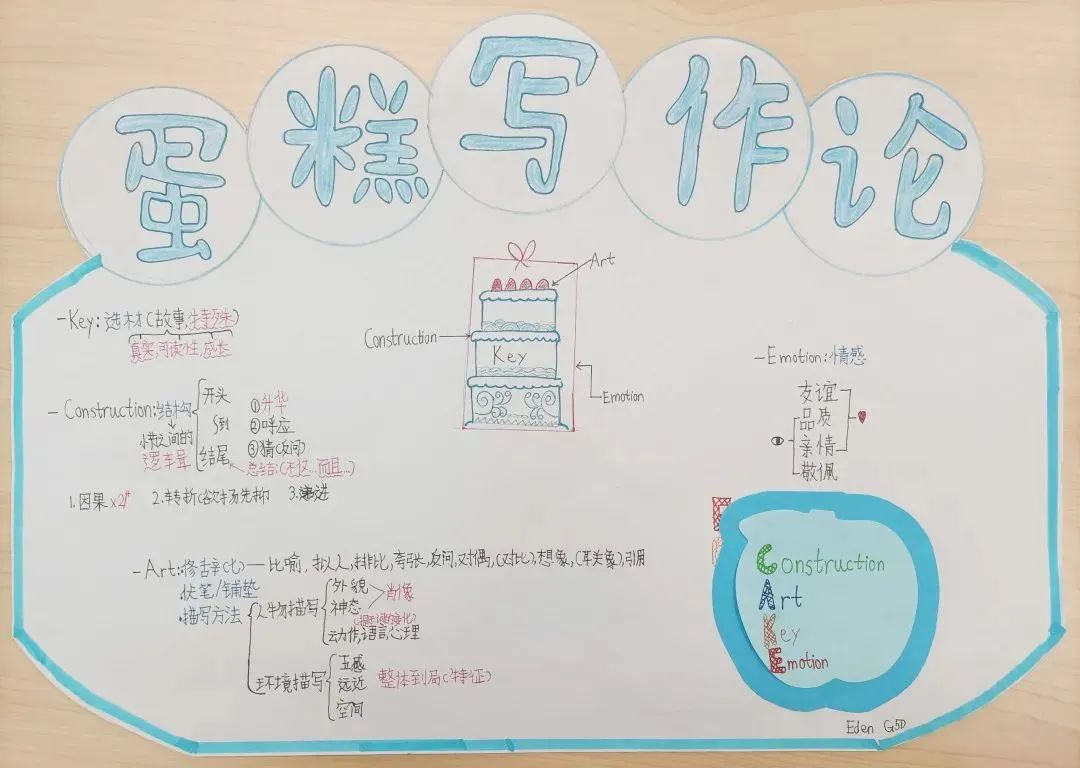 蛋糕写作论
Art
Construction
Key
Emotion
-Key:选材(故事,特殊)
真实,可读性,成长
-Construction:结构
情之间的
逻辑
开头
到
结尾
①升华
②呼应
③猜(反问)
总结:(不仅...而且...)
1.因果x2个 2.转折(欲扬先抑 3.递进
-Emotion:情感
友谊
品质
亲情
敬佩
-Art:修辞(比)—比喻,拟人,排比,夸张,反问,对偶,(对比),想象,(联想),引用
伏笔/铺垫
·描写方法
人物描写
外貌
神态
肖像
动作,语言,心理
环境描写
五感
远近
空间
整体到局(特征)
Construction
Art
Key
Emotion
Eden G5D